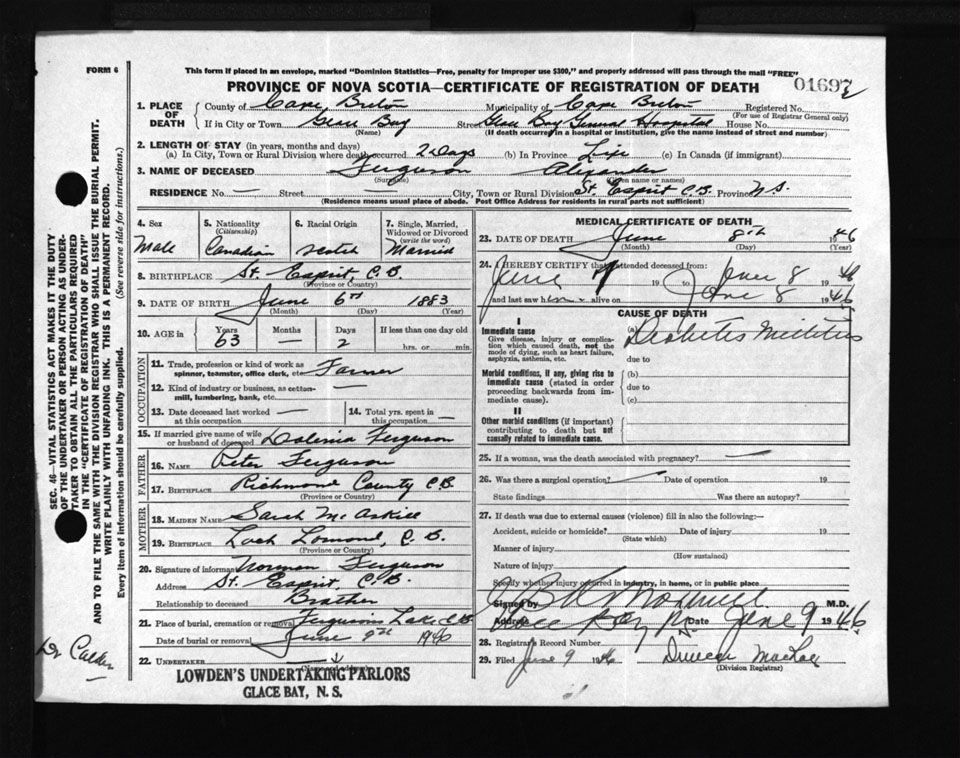 FORM 6
This form if placed in an envelope, marked "Dominion Statistics—Free, penalty for improper use $300," and properly addressed will pass through the mail "FREE"
PROVINCE OF NOVA SCOTIA—CERTIFICATE OF REGISTRATION OF DEATH
01697
1. PLACE OF DEATH
County of Cape Breton Municipality of Cape Breton Registered No.
(For use of Registrar General only)
If in City or Town Glace Bay Street Glace Bay General Hospital House No.
(Name) (If death occurred in a hospital or institution, give the name instead of street and number)
2. LENGTH OF STAY (in years, months and days)
(a) In City, Town or Rural Division where death occurred 2 Days (b) In Province Life (c) In Canada (if immigrant)
3. NAME OF DECEASED Ferguson Alexander
(Surname) (Given name or names)
RESIDENCE No. — Street — City, Town or Rural Division St. Esprit C.B. Province N.S.
(Residence means usual place of abode. Post Office Address for residents in rural parts not sufficient)
4. Sex
Male
5. Nationality (Citizenship)
Canadian
6. Racial Origin
Scotch
7. Single, Married, Widowed or Divorced (write the word)
Married
8. BIRTHPLACE St. Esprit, C.B.
(Province or Country)
9. DATE OF BIRTH June 6th 1883
(Month) (Day) (Year)
10. AGE in
Years Months Days If less than one day old
63 — 2 hrs. or min.
OCCUPATION
11. Trade, profession or kind of work as spinner, teamster, office clerk, etc. Farmer
12. Kind of industry or business, as cotton-mill, lumbering, bank, etc. —
13. Date deceased last worked at this occupation —
14. Total yrs. spent in this occupation —
15. If married give name of wife or husband of deceased Ferguson
FATHER
16. NAME Peter Ferguson
17. BIRTHPLACE Richmond County C.B.
(Province or Country)
MOTHER
18. MAIDEN NAME Sarah McAskill
19. BIRTHPLACE Loch Lomond, C.B.
(Province or Country)
20. Signature of informant Norman Ferguson
Address St. Esprit C.B.
Relationship to deceased Brother
21. Place of burial, cremation or removal Fergusons Lake, C.B.
Date of burial or removal June 1946
22. UNDERTAKER
LOWDEN'S UNDERTAKING PARLORS
GLACE BAY, N. S.
MEDICAL CERTIFICATE OF DEATH
23. DATE OF DEATH June 8th 1946
(Month) (Day) (Year)
24. I HEREBY CERTIFY that I attended deceased from:
June 19 to June 8 1946
and last saw him alive on June 8 1946
CAUSE OF DEATH
I
Immediate cause
Give disease, injury or complication which caused death, not the mode of dying, such as heart failure, asphyxia, asthenia, etc.
(a) Diabetes Mellitus
due to
Morbid conditions, if any, giving rise to immediate cause (stated in order proceeding backwards from immediate cause).
(b)
due to
(c)
II
Other morbid conditions (if important) contributing to death but not causally related to immediate cause.
25. If a woman, was the death associated with pregnancy? —
26. Was there a surgical operation? Date of operation 19
State findings Was there an autopsy?
27. If death was due to external causes (violence) fill in also the following:—
Accident, suicide or homicide? Date of injury 19
(State which)
Manner of injury
(How sustained)
Nature of injury
Specify whether injury occurred in industry, in home, or in public place
Signed by M.D.
Address Glace Bay Date June 9 1946
28. Registrar's Record Number
29. Filed June 9 1946
(Division Registrar)
SEC. 46—VITAL STATISTICS ACT MAKES IT THE DUTY
OF THE UNDERTAKER OR PERSON ACTING AS UNDER-
TAKER TO OBTAIN ALL THE PARTICULARS REQUIRED
IN THE "CERTIFICATE OF REGISTRATION OF DEATH"
AND TO FILE THE SAME WITH THE DIVISION REGISTRAR WHO SHALL ISSUE THE BURIAL PERMIT.
WRITE PLAINLY WITH UNFADING INK. THIS IS A PERMANENT RECORD.
Every item of information should be carefully supplied. (See reverse side for instructions.)
Dr